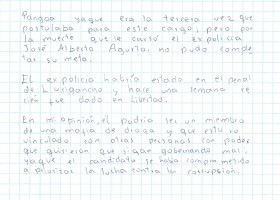 Pangoa yaque era la tercera vez que
postulaba para este cargo, pero por
la muerte que le cauto el expolicia
José Alberto Aguilar no pudo comple
tar su meta.
El expolicia habria estado en el penal
de Lurigancho y hace una semana re
cien fue dado en libertad.
En mi opinion, el podria ser un miembro
de una mafia de droga y que esta
vinculado con otras personal con poder
que quisieron que sigan gobernando mal,
yaque el candidato se habia comprometido
a priorizar la lucha contra la corrupsion.